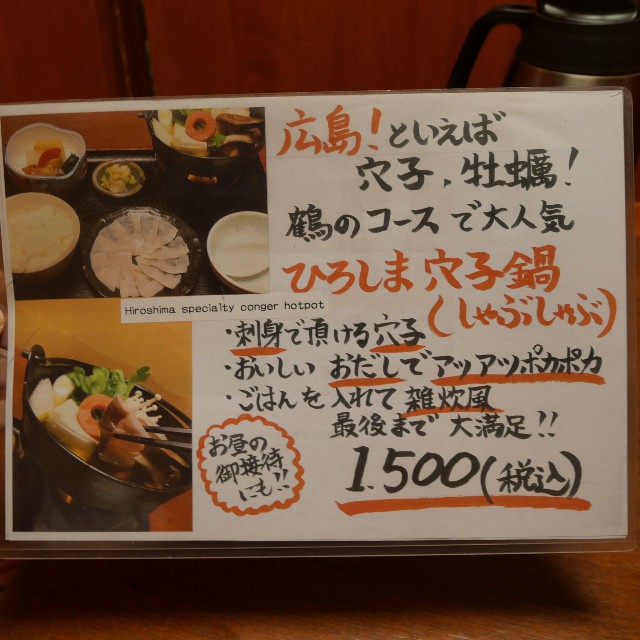 広島!といえば
穴子,牡蠣!
鶴のコースで大人気
ひろしま穴子鍋
(しゃぶしゃぶ)
Hiroshima specialty conger hotpot
・刺身で頂ける穴子
・おいしいおだしでアツアツポカポカ
・ごはんを入れて雑炊風
最後まで大満足!!
お昼の
御接待
にも!!
1.500(税込)